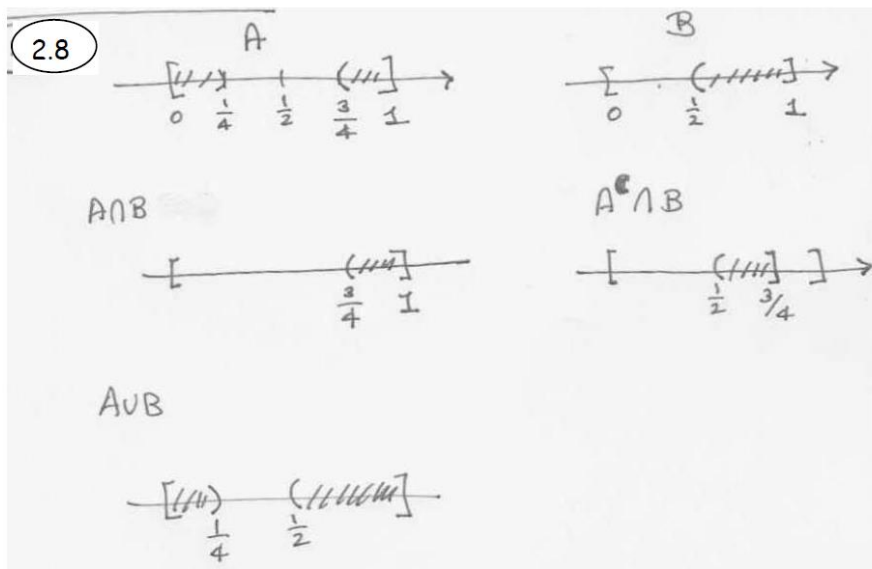 2.8
A
[ ) ( ]
0 1/4 1/2 3/4 1
B
[ ( ]
0 1/2 1
A∩B
[ ( ]
3/4 1
Aᶜ∩B
[ ( ] ]
1/2 3/4
A∪B
[ ) ( ]
1/4 1/2